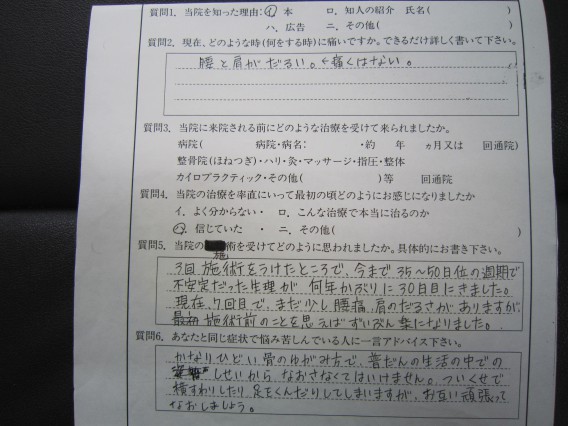 質問1. 当院を知った理由：イ. 本　ロ. 知人の紹介　氏名(　)
ハ. 広告　ニ. その他(　)
質問2. 現在、どのような時(何をする時)に痛いですか。できるだけ詳しく書いて下さい。
腰と肩がだるい。痛くはない。
質問3. 当院に来院される前にどのような治療を受けて来られましたか。
病院(　病院・病名：　・約　年　ヵ月又は　回通院)
整骨院(ほねつぎ)・ハリ・灸・マッサージ・指圧・整体
カイロプラクティック・その他(　)等　回通院
質問4. 当院の治療を率直にいって最初の頃どのようにお感じになりましたか
イ. よく分からない・　ロ. こんな治療で本当に治るのか
ハ. 信じていた　・　ニ. その他(　)
質問5. 当院の施術を受けてどのように思われましたか。具体的にお書き下さい。
3回施術をうけたところで、今まで35〜50日位の週期で
不安定だった生理が何年かぶりに30日目にきました。
現在、7回目で、まだ少し腰痛、肩のだるさがありますが、
最初施術前のことを思えばずいぶん楽になりました。
質問6. あなたと同じ症状で悩み苦しんでいる人に一言アドバイス下さい。
かなりひどい骨のゆがみ方で、普だんの生活の中での
しせいから、なおさなくてはいけません。ついくせで
横すわりしたり、足をくんだりしてしまいますが、お互い頑張って
なおしましょう。